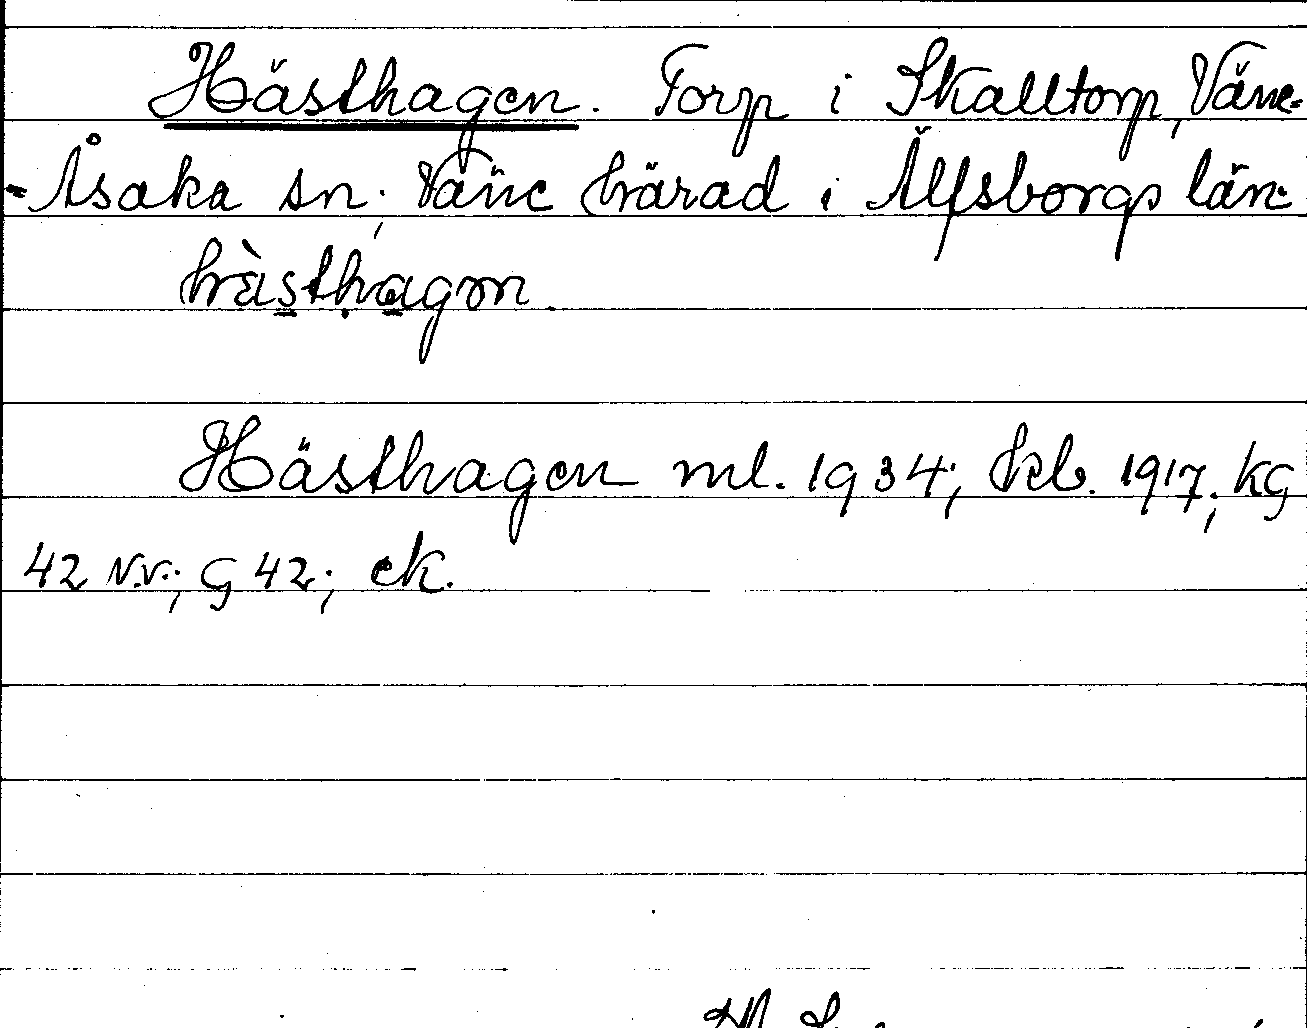 Hästhagen. Torp i Skalltorp, Väne-
-Åsaka sn; Väne härad i Älfsborgs län.
hàsthagən.
Hästhagen ml. 1934; hcl. 1917; KG
42 N.V.; G 42; ek.